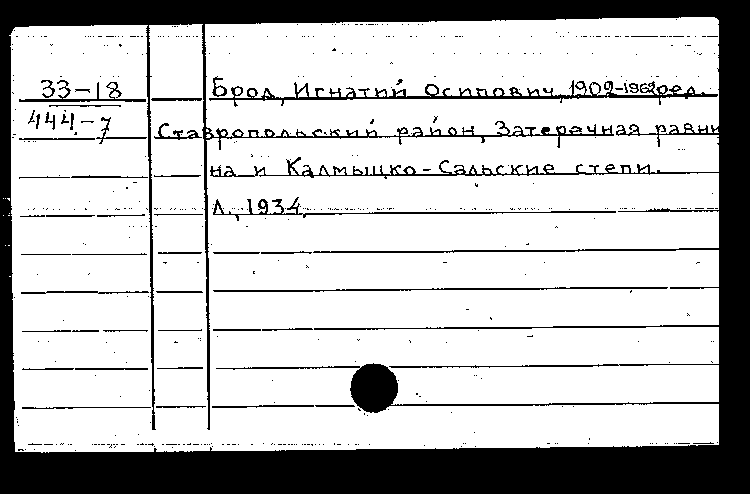 33-18
Брод, Игнатий Осипович, 1902-1962 ред.
444-7
Ставропольский район, Затеречная равни
на и Калмыцко-Сальские степи.
Л., 1934.